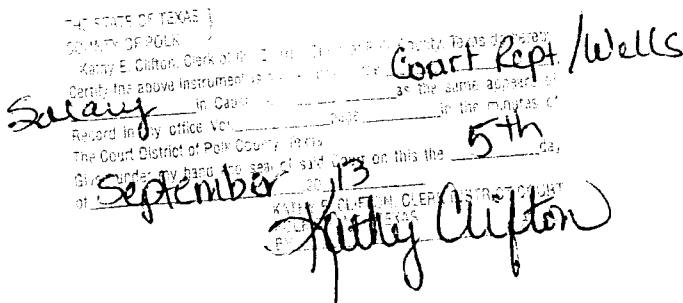 THE STATE OF TEXAS }
COUNTY OF POLK }
Kathy E. Clifton, Clerk of County, Texas do hereby
Certify the above instrument is Court Rept/Wells
Salary in as the same appears of
Record in my office Vol. Page in the minutes of
The Court District of Polk County, Texas
Given under my hand and seal of said Court on this the 5th day
of September 20 13
KATHY E. CLIFTON, CLERK DISTRICT COURT
TEXAS
BY Kathy Clifton